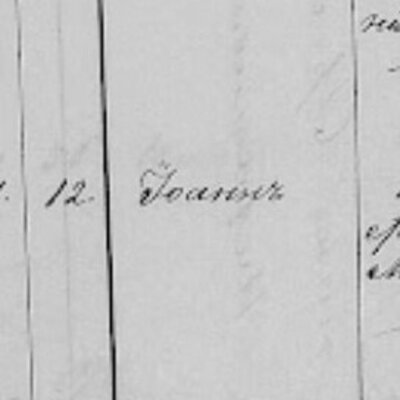 12. Joannes